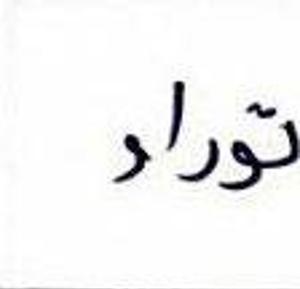 توراد